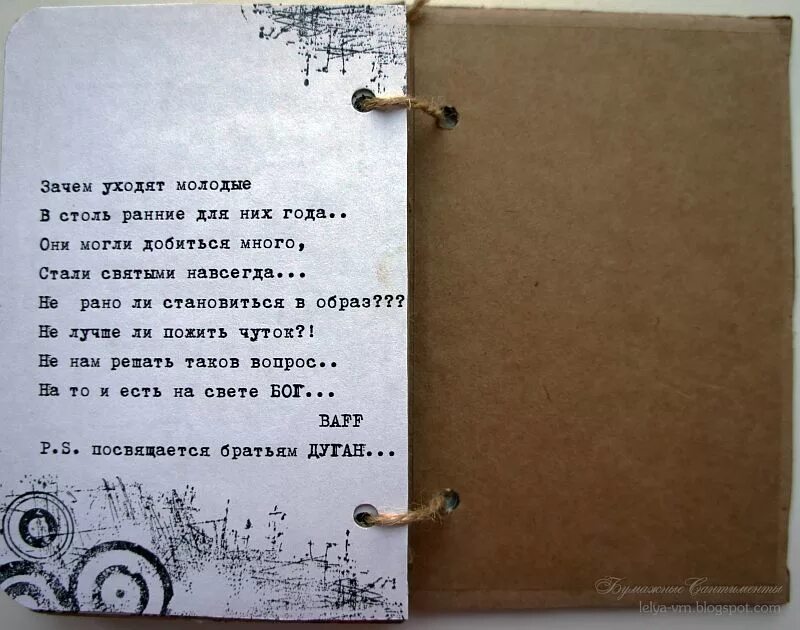 Зачем уходят молодые
В столь ранние для них года..
Они могли добиться много,
Стали святыми навсегда...
Не рано ли становиться в образ???
Не лучше ли пожить чуток?!
Не нам решать таков вопрос..
На то и есть на свете БОГ...
BAFF
P.S. посвящается братьям ДУГАН...
Бумажные Сантименты
lelya-vrn.blogspot.com